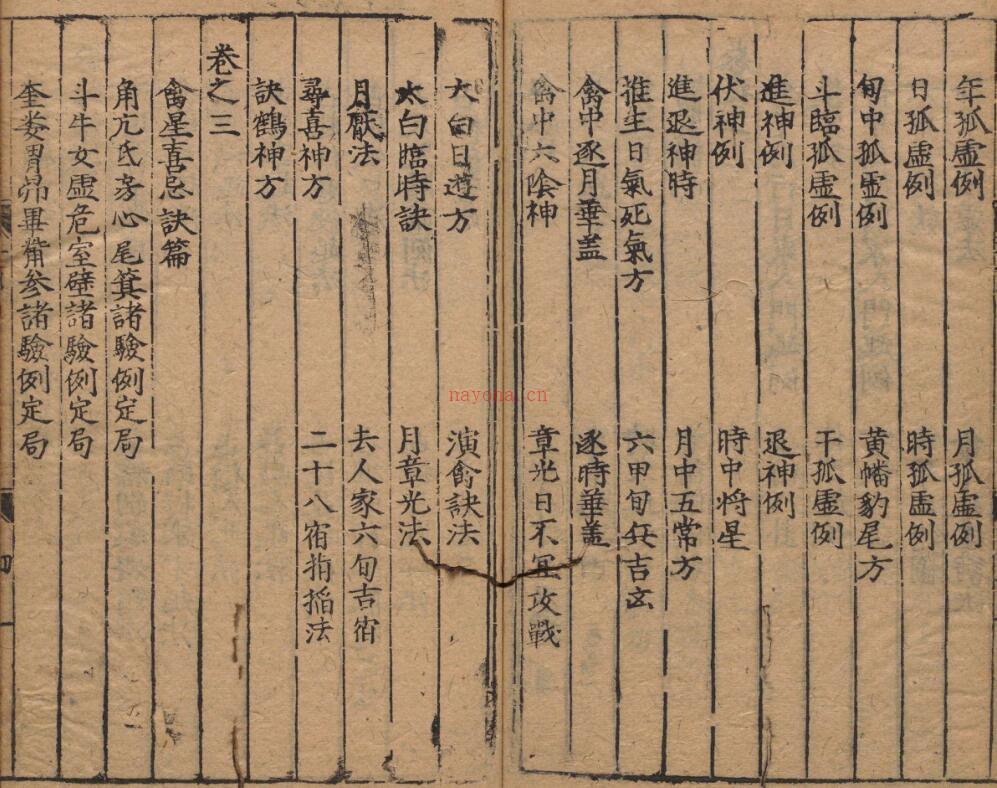 年孤虛例　月孤虛例
日孤虛例　時孤虛例
旬中孤虛例　黃幡豹尾方
斗臨孤虛例　干孤虛例
進神例　退神例
伏神例　時中將星
進退神時　月中五常方
推生日氣死氣方　六甲旬兵吉玄
禽中逐月華盖　逐時華盖
禽中六陰神　章光日不宜攻戰
大白日遊方　演禽訣法
太白臨時訣　月章光法
月厭法　去人家六旬吉宿
尋喜神方　二十八宿指掐法
訣鶴神方
卷之三
禽星喜忌訣篇
角亢氐房心尾箕諸驗例定局
斗牛女虛危室壁諸驗例定局
奎婁胃昴畢觜參諸驗例定局
四
nayona.cn